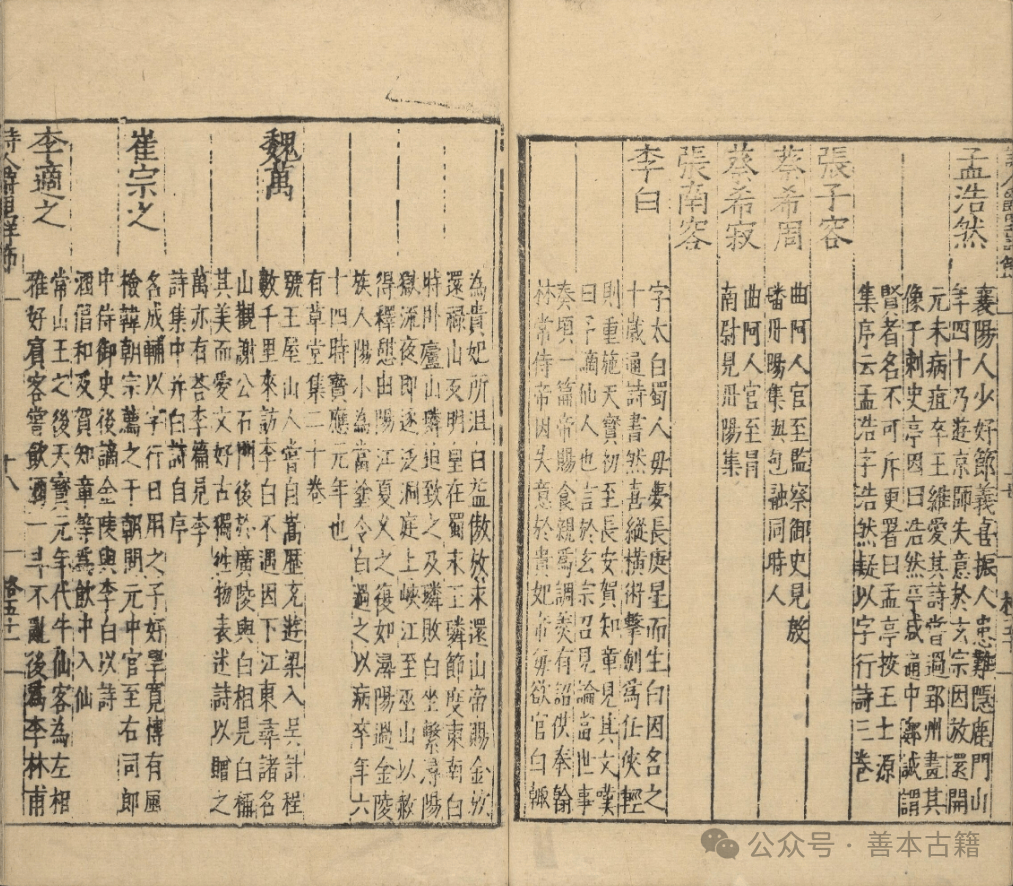 孟浩然
襄陽人少好節義喜振人患難隱鹿門山
年四十乃遊京師失意於玄宗因放還開
元末病疽卒王維愛其詩嘗過郢州畫其
像于刺史亭因曰浩然亭咸通中鄭諴謂
賢者名不可斥更署曰孟亭按王士源
集序云孟浩字浩然疑以字行詩三卷
張子容
蔡希周
曲阿人官至監察御史見殷
璠丹陽集與包融同時人
蔡希寂
曲阿人官至渭
南尉見丹陽集
張南容
李白
字太白蜀人母夢長庚星而生白因名之
十歲通詩書然喜縱橫術擊劍為任俠輕
財重施天寶初至長安賀知章見其文嘆
曰子謫仙人也言於玄宗召見論當世事
奏頌一篇帝賜食親爲調羹有詔供奉翰
林常侍帝因失意於貴妃帝每欲官白輒
為貴妃所沮白益傲放求還山帝賜金放
還祿山反明皇在蜀永王璘節度東南白
時卧廬山璘迫致之及璘敗白坐繫潯陽
獄流夜郎遂泛洞庭上峽江至巫山以赦
得釋憩岳陽江夏乆之復如潯陽過金陵
族人陽冰為當塗令白過之以病卒年六
十四時寶應元年也
有草堂集二十卷
魏萬
號王屋山人嘗自嵩歷兖遊梁入吳計程
數千里來訪李白不遇因下江東尋諸名
山觀謝公石門後於廣陵與白相見白稱
其美而愛文好古獨往物表迷詩以贈之
萬亦有荅李篇見李
詩集中并白詩自序
崔宗之
名成輔以字行日用之子好學寬博有風
檢韓朝宗薦之于朝開元中官至右司郎
中侍御史後謫金陵與李白以詩
酒倡和及賀知章等爲飲中八仙
李適之
常山王之後天寶元年代牛仙客為左相
雅好賓客嘗飲酒一斗不亂後爲李林甫
詩人爵里詳節
十八
格五十一
公众号·善本古籍